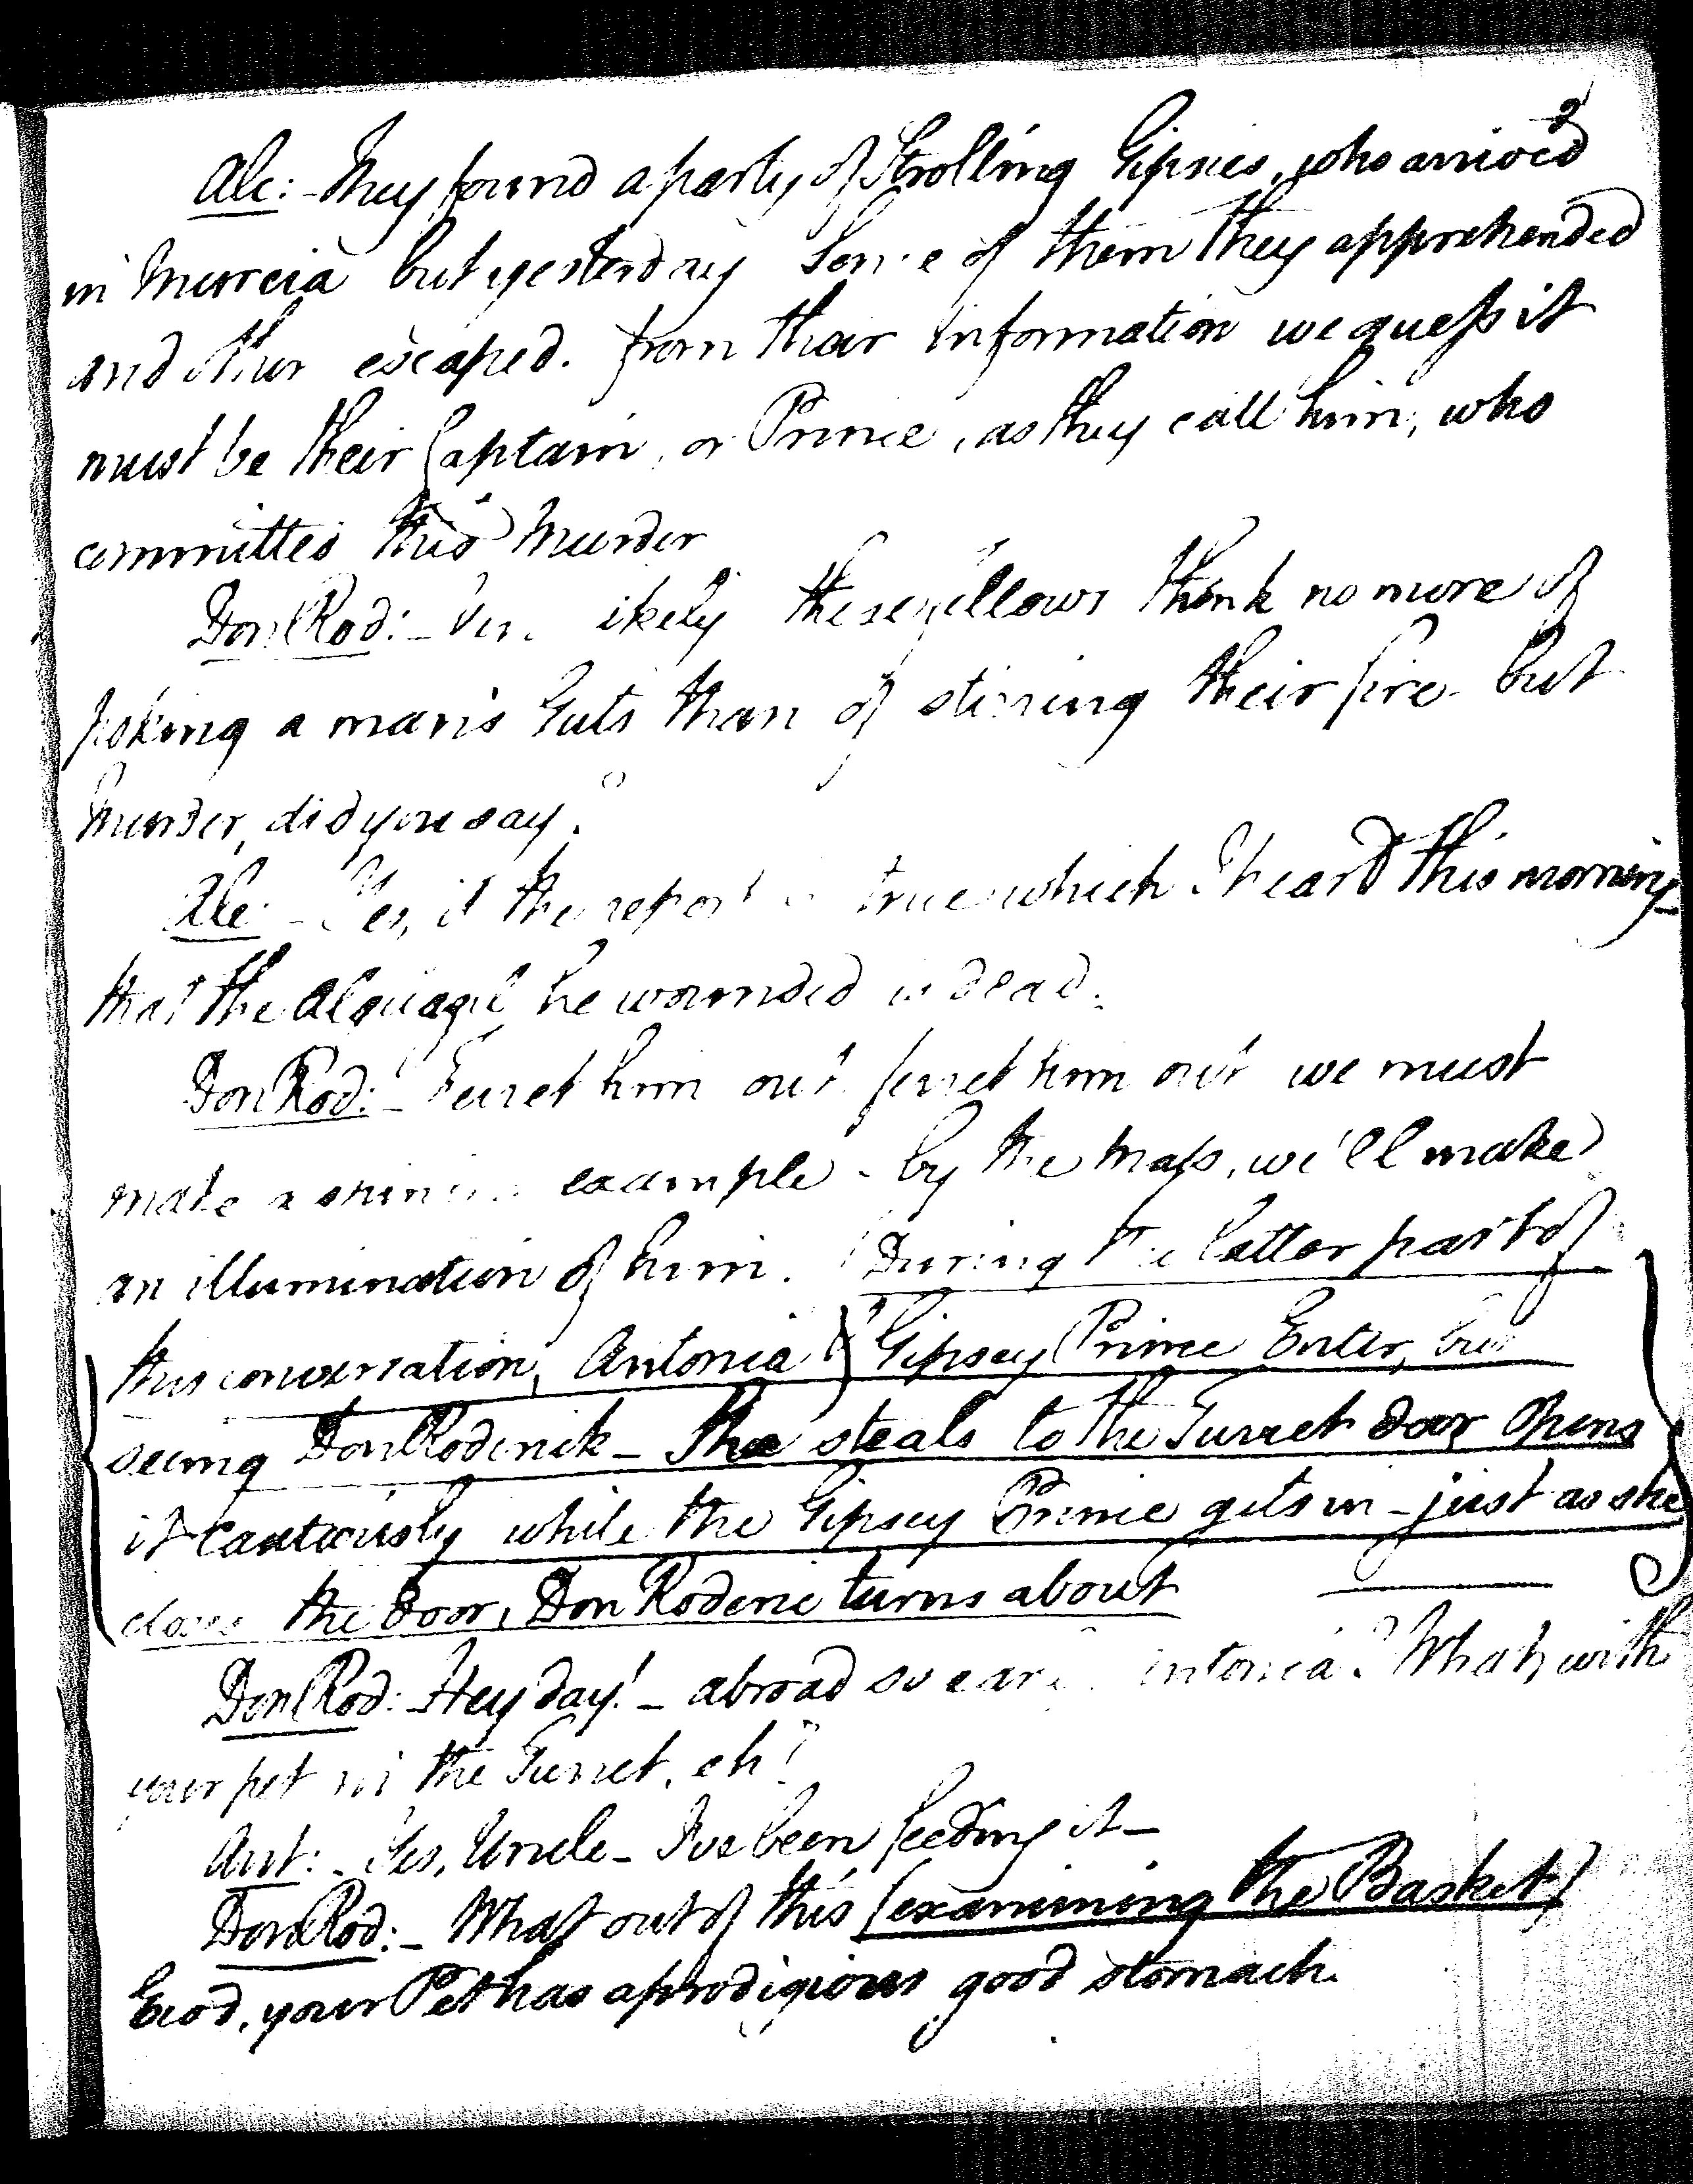 2
Alc: - They found a party of Strolling Gipsies, who arrived
in Murcia but yesterday Some of them they apprehended
and other escaped. from their information we guess it
must be their Captain, or Prince, as they call him, who
committed this Murder
Don Rod: - Very likely these fellows think no more of
poking a man's Guts than of stirring their fire - but
Murder, did you say?
Alc: - Yes, if the report is true which I heard this morning
that the Alguazil he wounded is dead.
Don Rod: - Ferret him out ferret him out we must
make a shining example - by the Mass, we'll make
an illumination of him. (During the latter part of
this conversation, Antonia & Gipsey Prince Enter, but
seeing Don Roderick - She steals to the Turret door Opens
it Cautiously while the Gipsey Prince gets in - just as she
closes the Door, Don Roderic turns about
Don Rod: - Hey day! - abroad so early Antonia? What, with
your pet in the Turret, eh?
Ant: - Yes, Uncle - I've been feeding it -
Don Rod: - What out of this (examining the Basket)
Ecod, your Pet has a prodigious good stomach.